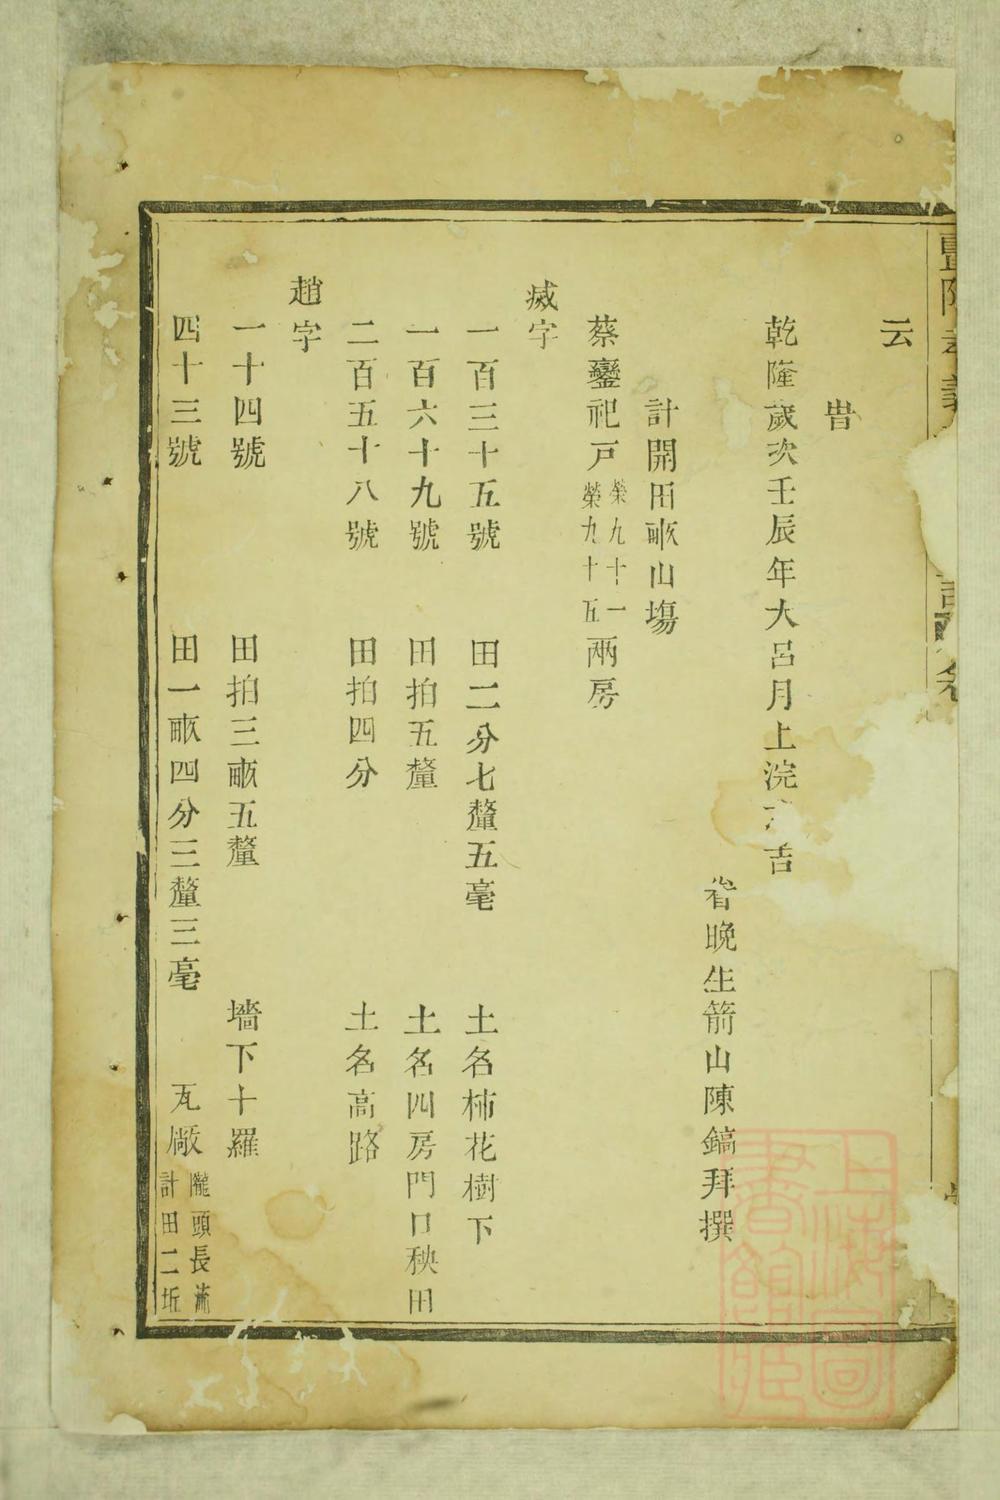 云
旹
乾隆歲次壬辰年大呂月上浣 吉
眷晚生箭山陳鎬拜撰
計開田畝山塲
蔡鑾祀戸榮九十一榮九十五兩房
烕字
一百三十五號 田二分七釐五毫 土名柿花樹下
一百六十九號 田拍五釐 土名四房門口秧田
二百五十八號 田拍四分 土名高路
趙字
一十四號 田拍三畝五釐 墻下十羅
四十三號 田一畝四分三釐三毫 瓦廠隴頭長流計田二坵
上海圖書館藏